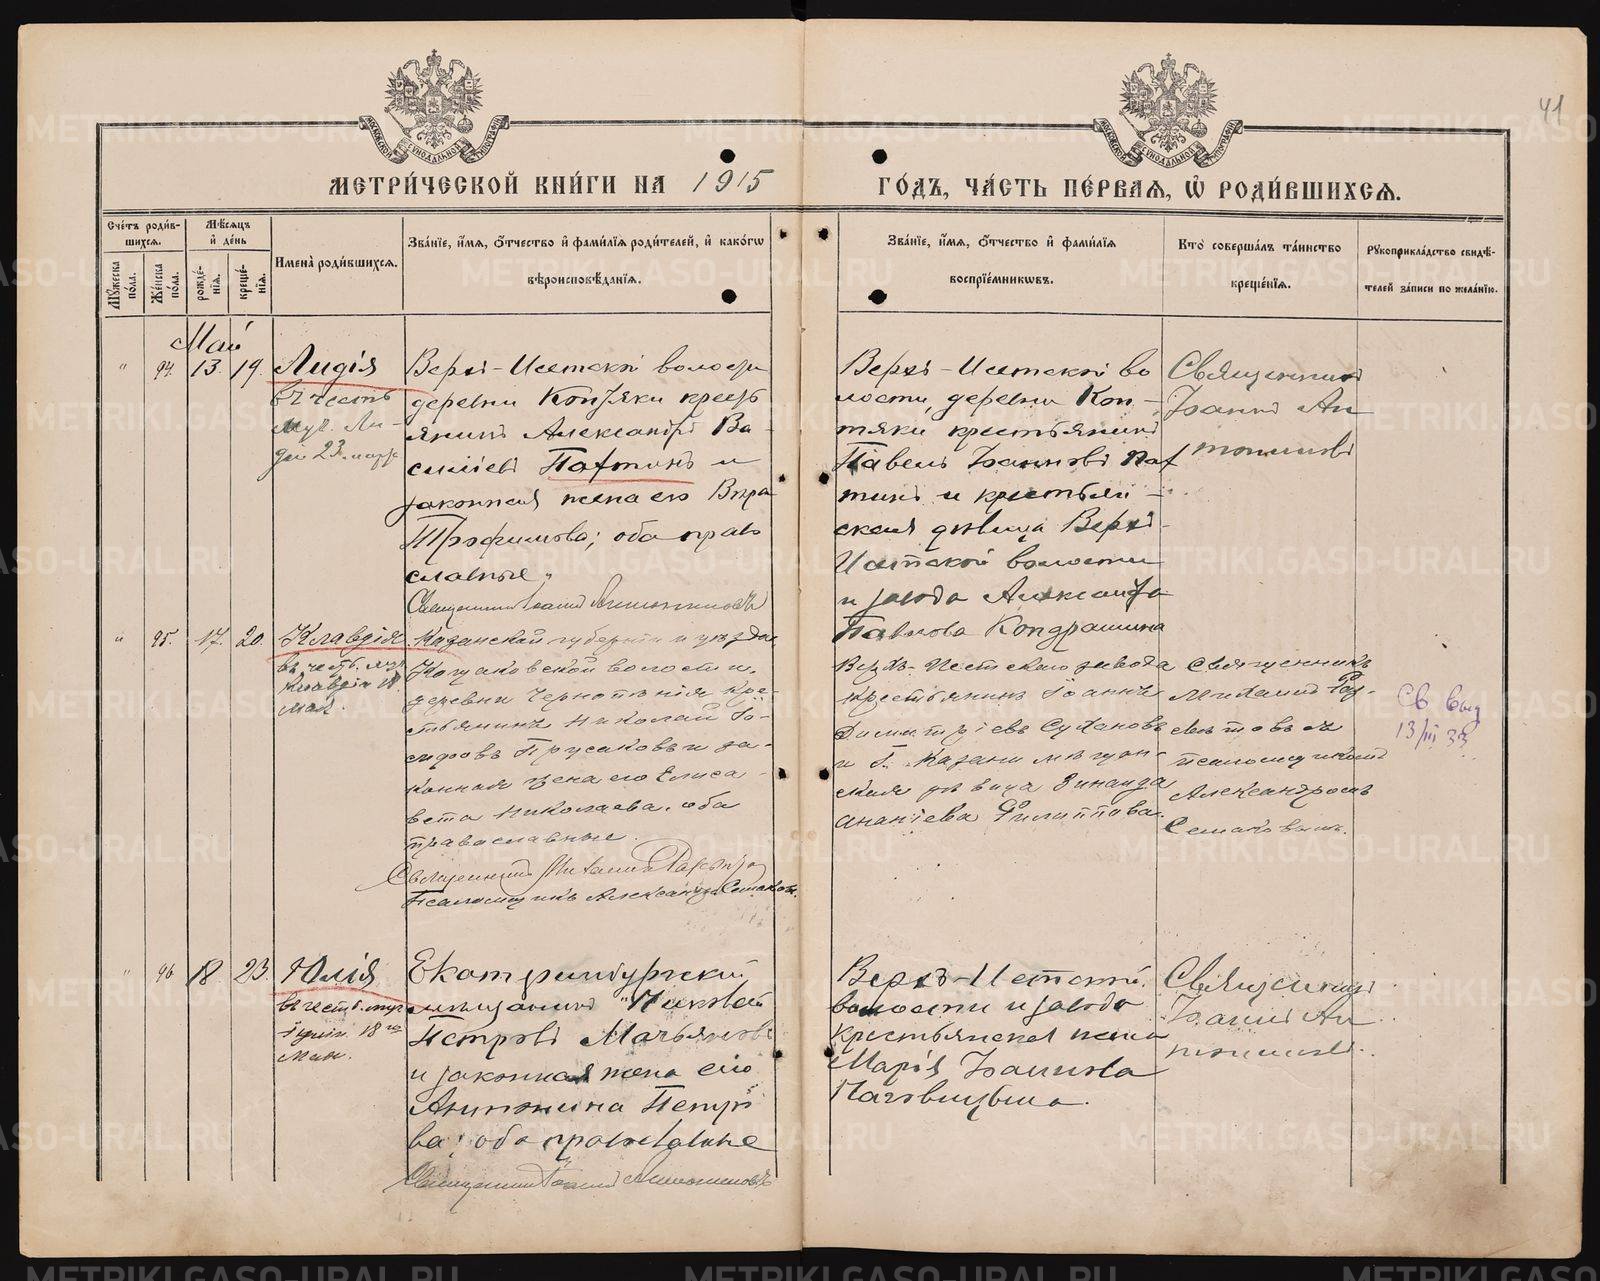 41
МЕТРИ́ЧЕСКОЙ КНИ́ГИ НА 1915
ГО́ДЪ, ЧА́СТЬ ПЕ́РВАЯ, Ѽ РОДИ́ВШИХСЯ.
Сче́тъ роди́в-
шихся.
Мꙋ́жеска по́ла.
Же́нска по́ла.
Мѣ́сяцъ
и́ де́нь
рожде́-
нїя.
креще́-
нїя.
Имена̀ роди́вшихся.
Зва́нїе, и́мя, ѻ́тчество и́ фами́лїя роди́телей, и́ како́гѡ
вѣроисповѣ́данїя.
Зва́нїе, и́мя, ѻ́тчество и́ фами́лїя
воспрїе́мникѡвъ.
Кто̀ соверша́лъ та́инство
креще́нїя.
Рꙋкоприкла́дство свидѣ́-
телей за́писи по жела́нїю.
Май
" 94. 13. 19.
Лидія
въ честь
муч. Ли-
діи 23. марта
Верхъ-Исетской волости
деревни Коптяки кресть
янинъ Александръ Ва-
силіевъ Пахтинъ и
законная жена его Вѣра
Трофимова; оба право
славные.
Священникъ Іоаннъ Антониновъ
Верхъ-Исетской во
лости, деревни Коп-
тяки крестьянинъ
Павелъ Іоанновъ Пах
тинъ и крестьян-
ская дѣвица Верхъ-
Исетской волости
и завода Александра
Павлова Кондрашина
Священникъ
Іоаннъ Ан
тониновъ
" 95. 17. 20.
Клавдія
въ честь муч
Клавдіи 18
мая.
Казанской губерніи и уѣзда
Кощаковской волости,
деревни Чернопенія кре-
стьянинъ Николай Іо-
сифовъ Прусаковъ и за-
конная жена его Елиса-
вета Николаева. оба
православные.
Священникъ Михаилъ
Псаломщикъ Александръ Семаковъ.
Верхъ-Исетскаго завода
крестьянинъ Іоаннъ
Димитріевъ Сухановъ
и г. Казани мѣщан-
ская дѣвица Зинаида
Ананіева Филиппова.
Священникъ
Михаилъ
съ
псаломщикомъ
Александромъ
Семаковымъ.
Св выд
13/III 33
" 96 18 23.
Юлія
въ честь муч
Іуліи 18го
мая.
Екатеринбургскій
мѣщанинъ Николай
Петровъ
и законная жена его
Антонина Петро
ва; оба православные
Священникъ Іоаннъ Антониновъ
Верхъ-Исетской
волости и завода
крестьянская жена
Марія Іоаннова
Священникъ
Іоаннъ Ан
тониновъ.
МОСКОВСКОЙ СѴНОДАЛЬНОЙ ТИПОГРАФІИ
МОСКОВСКОЙ СѴНОДАЛЬНОЙ ТИПОГРАФІИ
METRIKI.GASO-URAL.RU